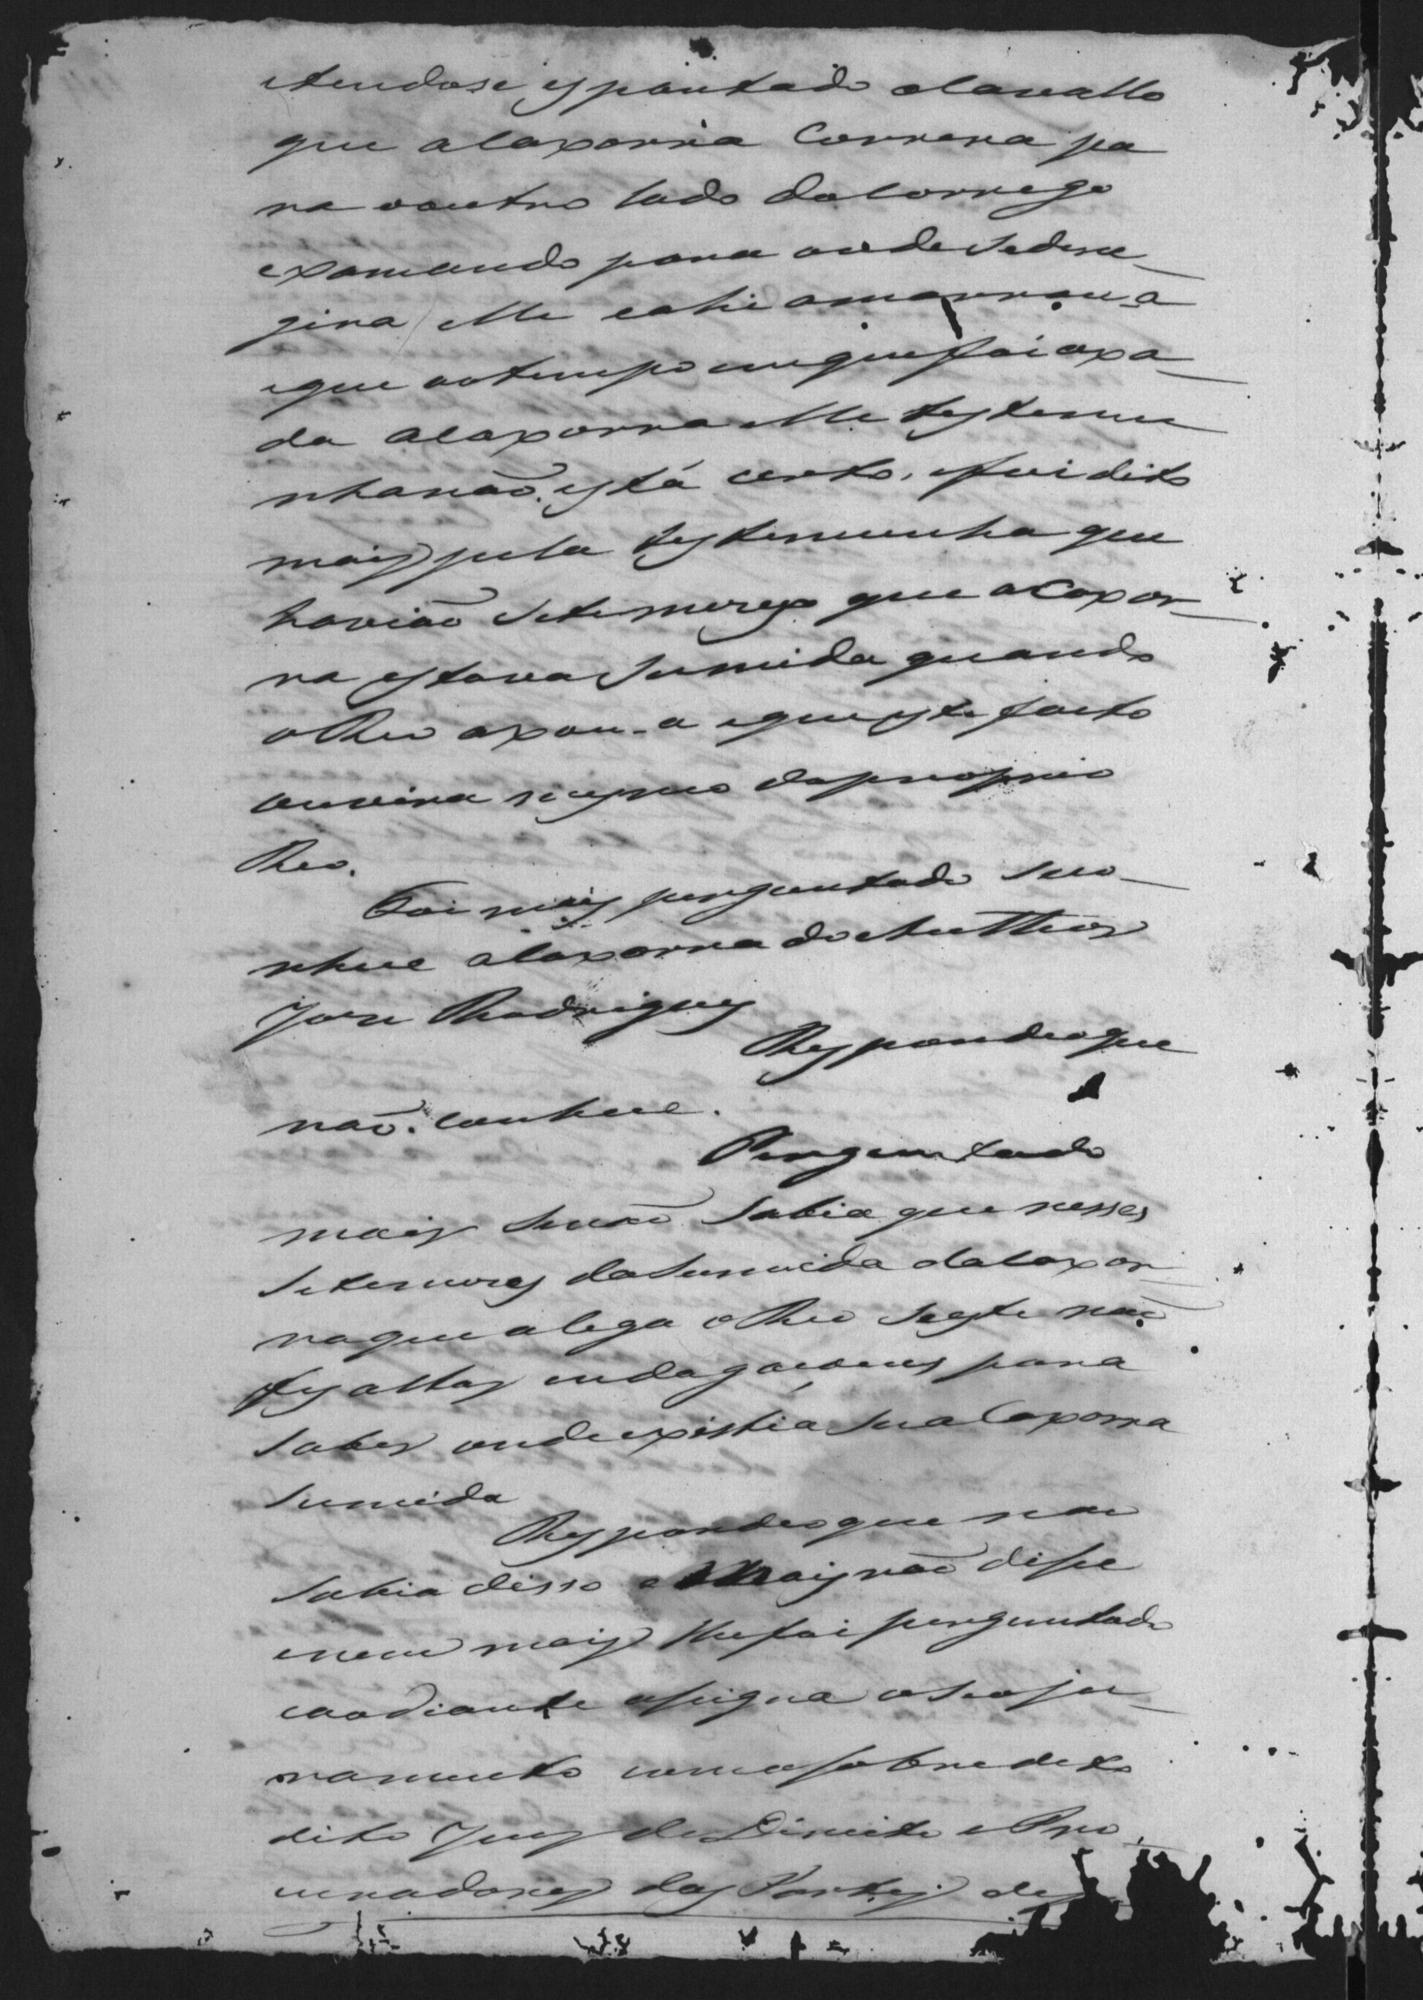 etendose espantado o Cavallo
que a Caxorra Correra pa
ra o outro lado do Corrego
examando para onde se
gira elle e ahi amarrou-a
e que ao tempo em que foi axa-
da a Caxorra elle testemu
nha não está certo, e foi dito
mais pela testemunha que
havião sete mezes que a Caxor-
ra estava sumida quando
o Reo axou-a e que este facto
ouvira mesmo do proprio
Reo.
Foi mais perguntado se co-
nhece a Caxorra de Matheos
José Rodrigues
Respondeo que
não conhece.
Perguntado
mais se não sabia que nesses
sete mezes da sumida da Caxor-
ra que alega o Reo se este não
fes altas endagacoens para
saber onde existia sua Caxorra
sumida
Respondeo que não
sabia disso e mais não disse
e nem mais lhe foi perguntado
e ao diante assigna o seo ju-
ramento com o sobredito
dito Juis de Direito e Pro
curadores das Partes